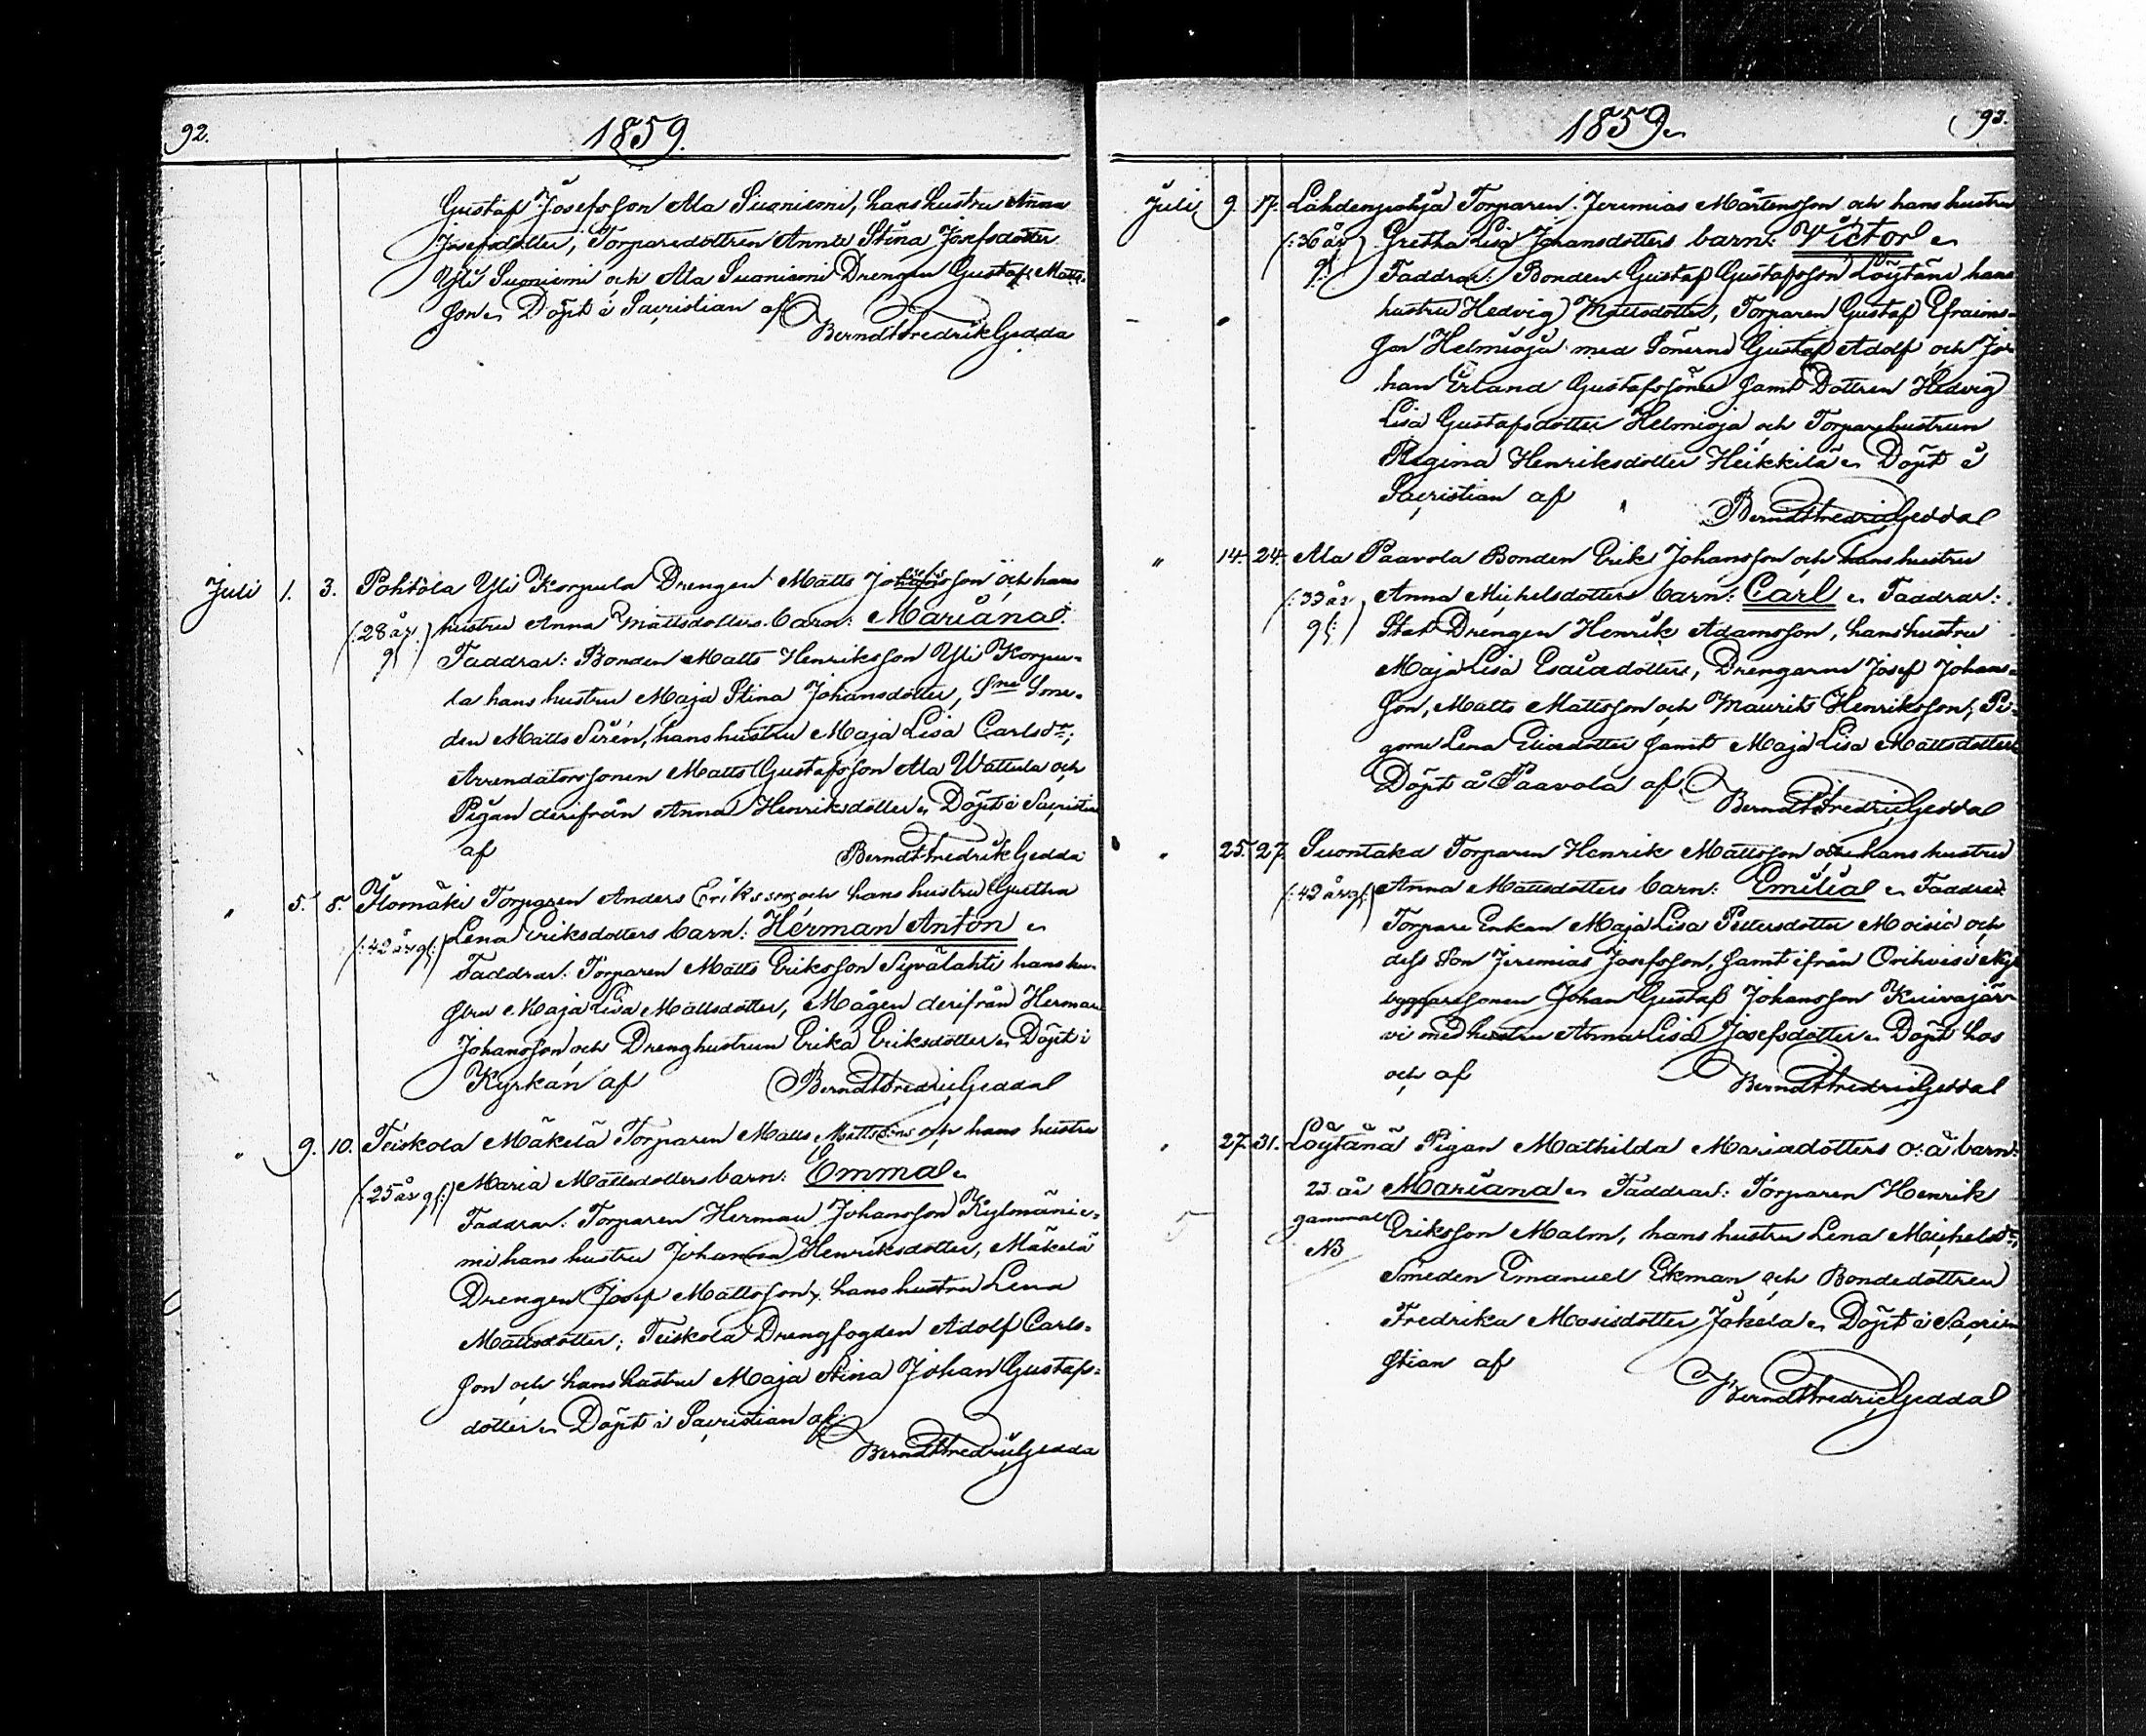 92.
1859.
Gustaf Josefsson Ala Suoniemi, hans hustru Anna
Josefsdotter, Torparedottren Anna Stina Josefsdotter
Yli Suoniemi och Ala Suoniemi Drengen Gustaf Matts-
son. Döpt i Sacristian af
Berndt Fredrik Gedda
Juli 1. 3. Pohtola Yli Korpula Drengen Matts Johansson och hans
(:28 år hustru Anna Mattsdotters barn: Mariana.
gl:) Faddrar: Bonden Matts Henriksson Yli Korpu-
la hans hustru Maja Stina Johansdotter, Sme-
den Matts Sirén, hans hustru Maja Lisa Carlsdr;
Arrendatorssonen Matts Gustafsson Ala Wattula och
Pigan derifrån Anna Henriksdotter. Döpt i Sacristian
af
Berndt Fredrik Gedda
" 5. 8. Ylomäki Torparen Anders Eriksson och hans hustru Gretha
(:42 år gl:) Lena Eriksdotters barn: Herman Anton.
Faddrar: Torparen Matts Eriksson Syvälahti hans hu-
stru Maja Lisa Mattsdotter, Mågen derifrån Herman
Johansson och Drenghustrun Erika Eriksdotter. Döpt i
Kyrkan af
Berndt Fredric Gedda
" 9. 10. Teiskola Mäkelä Torparen Matts Mattssons och hans hustru
(:25 år gl:) Maria Mattsdotters barn: Emma.
Faddrar: Torparen Herman Johansson Kylmänie-
mi hans hustru Johanna Henriksdotter, Mäkelä
Drengen Josef Mattsson, hans hustru Lena
Mattsdotter; Teiskola Drengfogden Adolf Carls-
son och hans hustru Maja Stina Johan Gustafs-
dotter. Döpt i Sacristian af
Berndt Fredric Gedda
1859.
93.
Juli 9. 17. Lahdenpohja Torparen Jeremias Mårtensson och hans hustru
(:36 år Gretha Lisa Johansdotters barn: Victor.
gl:) Faddrar: Bonden Gustaf Gustafsson Löytäne hans
hustru Hedvig Mattsdotter, Torparen Gustaf Efraims-
son Helmioja med Sönerne Gustaf Adolf och Jo-
han Erland Gustafssöner samt Dottren Hedvig
Lisa Gustafsdotter Helmioja och Torparehustrun
Regina Henriksdotter Heikkilä. Döpt i
Sacristian af
Berndt Fredric Gedda
" 14. 24. Ala Paavola Bonden Erik Johansson och hans hustru
(:33 år Anna Michelsdotters barn: Carl. Faddrar:
gl:) Stat Drengen Henrik Adamsson, hans hustru
Maja Lisa Esaiædotter, Drengarne Josef Johans-
son, Matts Mattsson och Maurits Henriksson, Pi-
gorne Lena Eliædotter samt Maja Lisa Mattsdotter
Döpt å Paavola af
Berndt Fredric Gedda
" 25. 27. Suontaka Torparen Henrik Mattsson och hans hustru
(:42 år gl:) Anna Mattsdotters barn: Emilia. Faddrar:
Torpare Enkan Maja Lisa Pettersdotter Moisio och
dess Son Jeremias Josefsson, samt ifrån Orihvesi Ny-
byggaresonen Johan Gustaf Johansson Kuivajär-
vi med hustru Anna Lisa Josefsdotter. Döpt hos
och af
Berndt Fredric Gedda
" 27. 31. Löytänä Pigan Mathilda Mariædotters o: ä barn:
23 år Mariana. Faddrar: Torparen Henrik
gammal Eriksson Malm, hans hustru Lena Michelsdr;
NB Smeden Emanuel Ekman och Bondedottren
Fredrika Mosisdotter Jokela. Döpt i Sacri-
stian af
Berndt Fredric Gedda
5